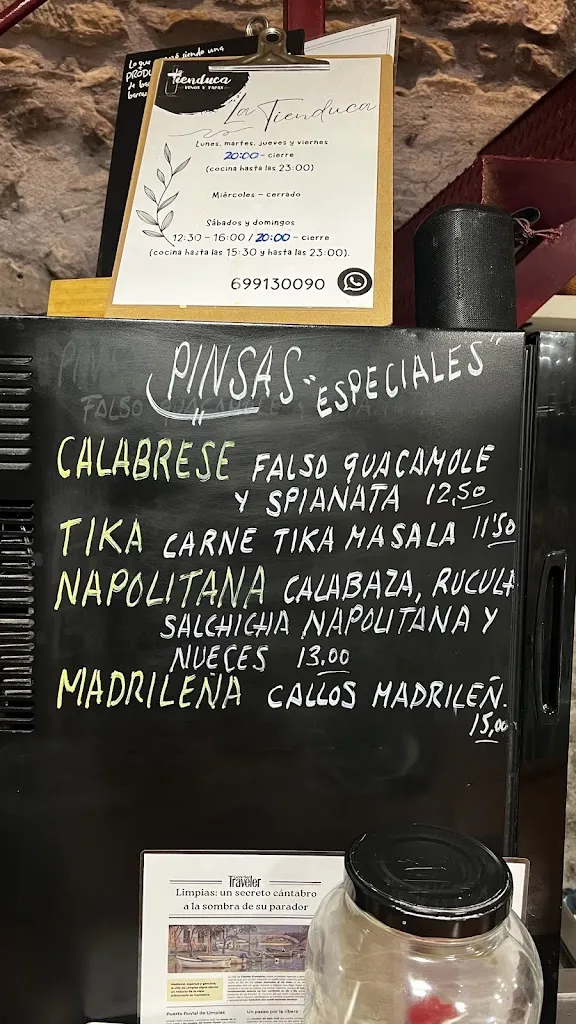 Lo que
PRODU
de ba
barra
siendo una
Tienduca
VINOS Y TAPAS
La Tienduca
Lunes, martes, jueves y viernes
20:00 - cierre
(cocina hasta las 23:00)
Miércoles - cerrado
Sábados y domingos
12:30 - 16:00 / 20:00 - cierre
(cocina hasta las 15:30 y hasta las 23:00).
699130090
PINSAS "ESPECIALES"
FALSO GUACAMOLE
CALABRESE FALSO GUACAMOLE
Y SPIANATA 12,50
TIKA CARNE TIKA MASALA 11'50
NAPOLITANA CALABAZA, RUCULA
SALCHICHA NAPOLITANA Y
NUECES 13.00
MADRILEÑA CALLOS MADRILEÑ.
15,00
Traveler
Limpias: un secreto cántabro
a la sombra de su parador
Puerto fluvial de Limpias
Un paseo por la ribera